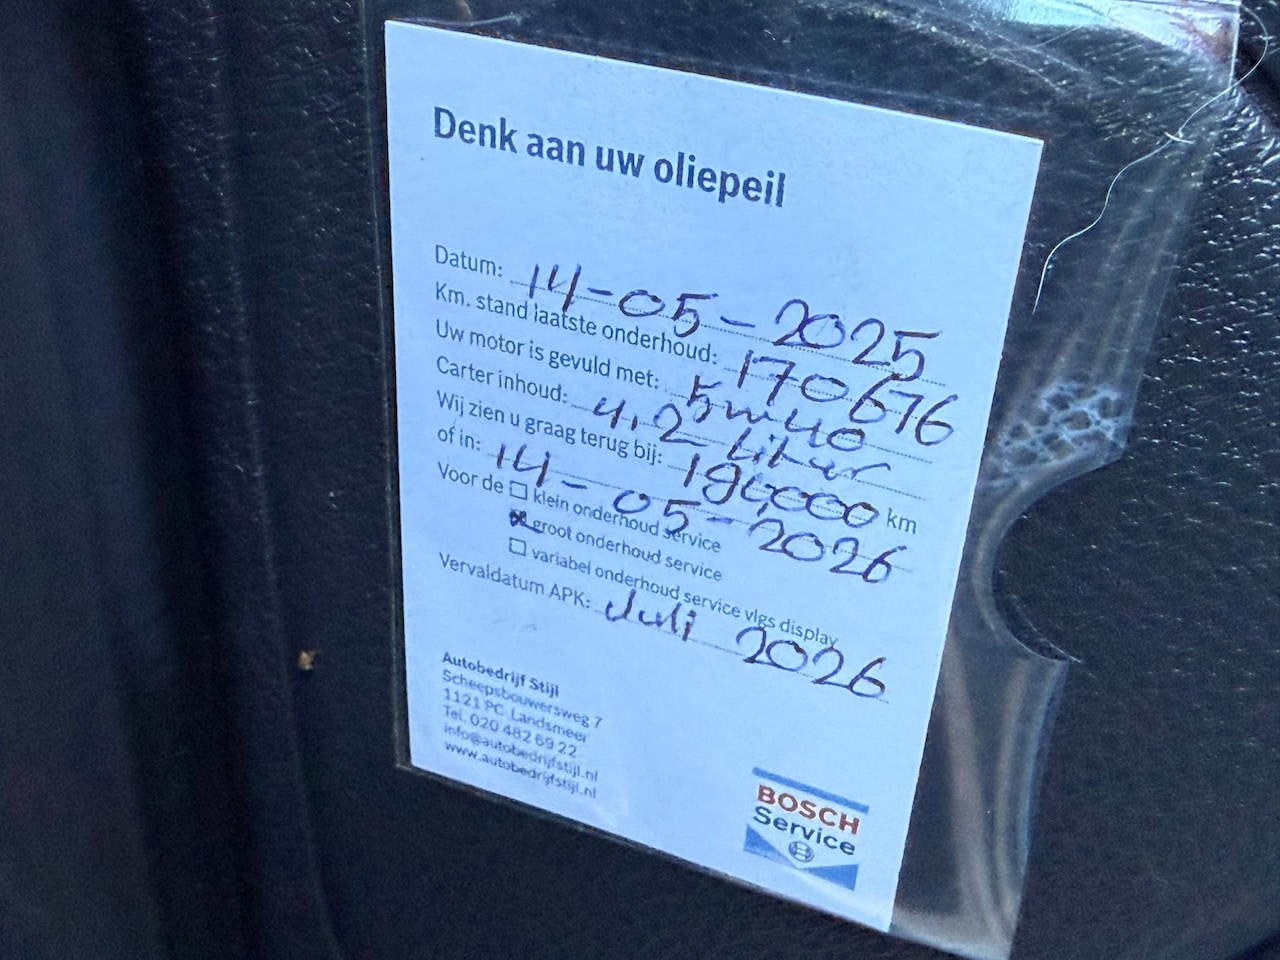 Denk aan uw oliepeil
Datum: 14-05-2025
Km. stand laatste onderhoud: 170676
Uw motor is gevuld met: 5w40
Carter inhoud: 4,2 Liter
Wij zien u graag terug bij: km
of in: 14-05-2026
Voor de ☐ klein onderhoud service
☒ groot onderhoud service
☐ variabel onderhoud service vlgs display
Vervaldatum APK: Juli 2026
Autobedrijf Stijl
Scheepsbouwersweg 7
1121 PC Landsmeer
Tel. 020 482 69 22
info@autobedrijfstijl.nl
www.autobedrijfstijl.nl
BOSCH
Service